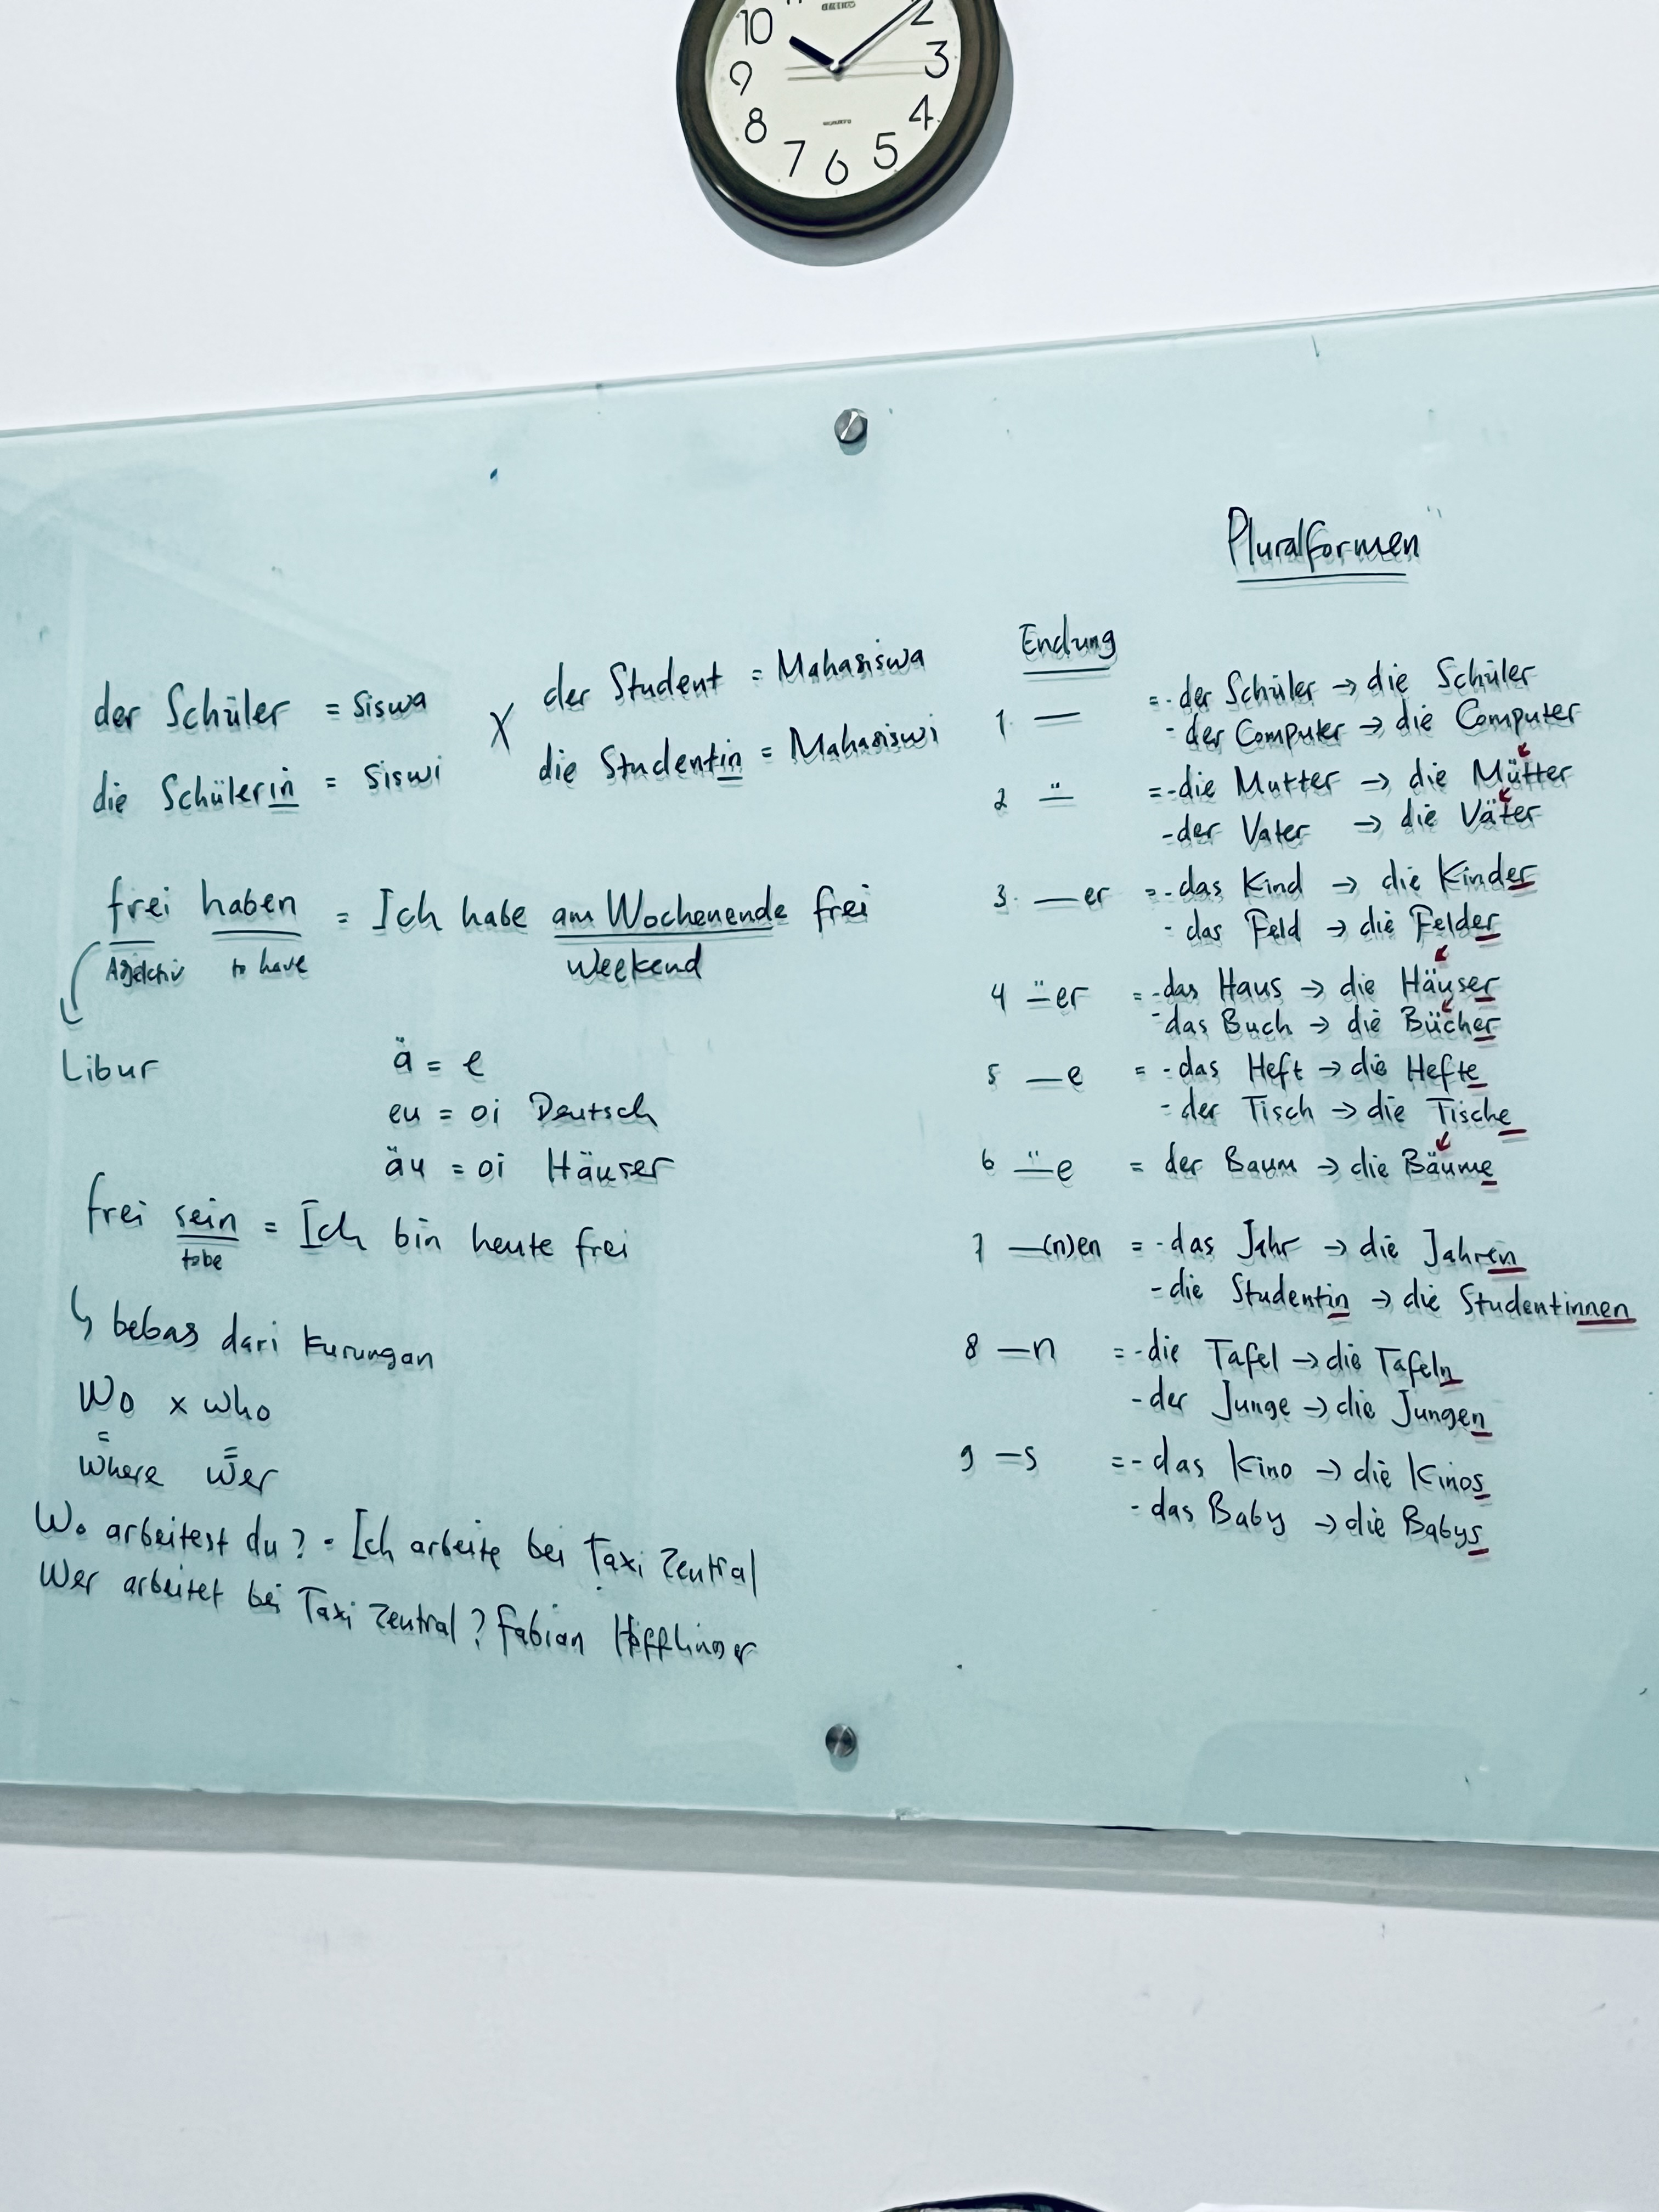 10
SEIKO
2
9
3
8
QUARTZ
4
7
6
5
Pluralformen
Endung
der Schüler = Siswa
die Schülerin = Siswi
X
der Student = Mahasiswa
die Studentin = Mahasiswi
frei haben = Ich habe am Wochenende frei
to have
Weekend
Libur
ä = e
eu = oi Deutsch
äu = oi Häuser
frei sein = Ich bin heute frei
tobe
bebas dari kurungan
Wo x who
= =
where wer
Wo arbeitest du? - Ich arbeite bei Taxi Zentral
Wer arbeitet bei Taxi Zentral? Fabian
1. — = - der Schüler → die Schüler
- der Computer → die Computer
2 ̈— = - die Mutter → die Mütter
- der Vater → die Väter
3. —er = - das Kind → die Kinder
- das Feld → die Felder
4 ̈—er = - das Haus → die Häuser
- das Buch → die Bücher
5 —e = - das Heft → die Hefte
- der Tisch → die Tische
6 ̈—e = der Baum → die Bäume
7 —(n)en = - das Jahr → die Jahren
- die Studentin → die Studentinnen
8 —n = - die Tafel → die Tafeln
- der Junge → die Jungen
9 —s = - das Kino → die Kinos
- das Baby → die Babys